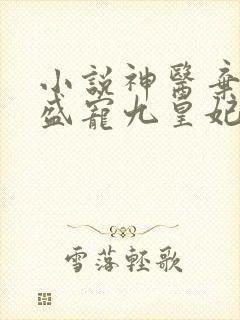 小說神醫棄
盛寵九皇妃
雪落輕歌